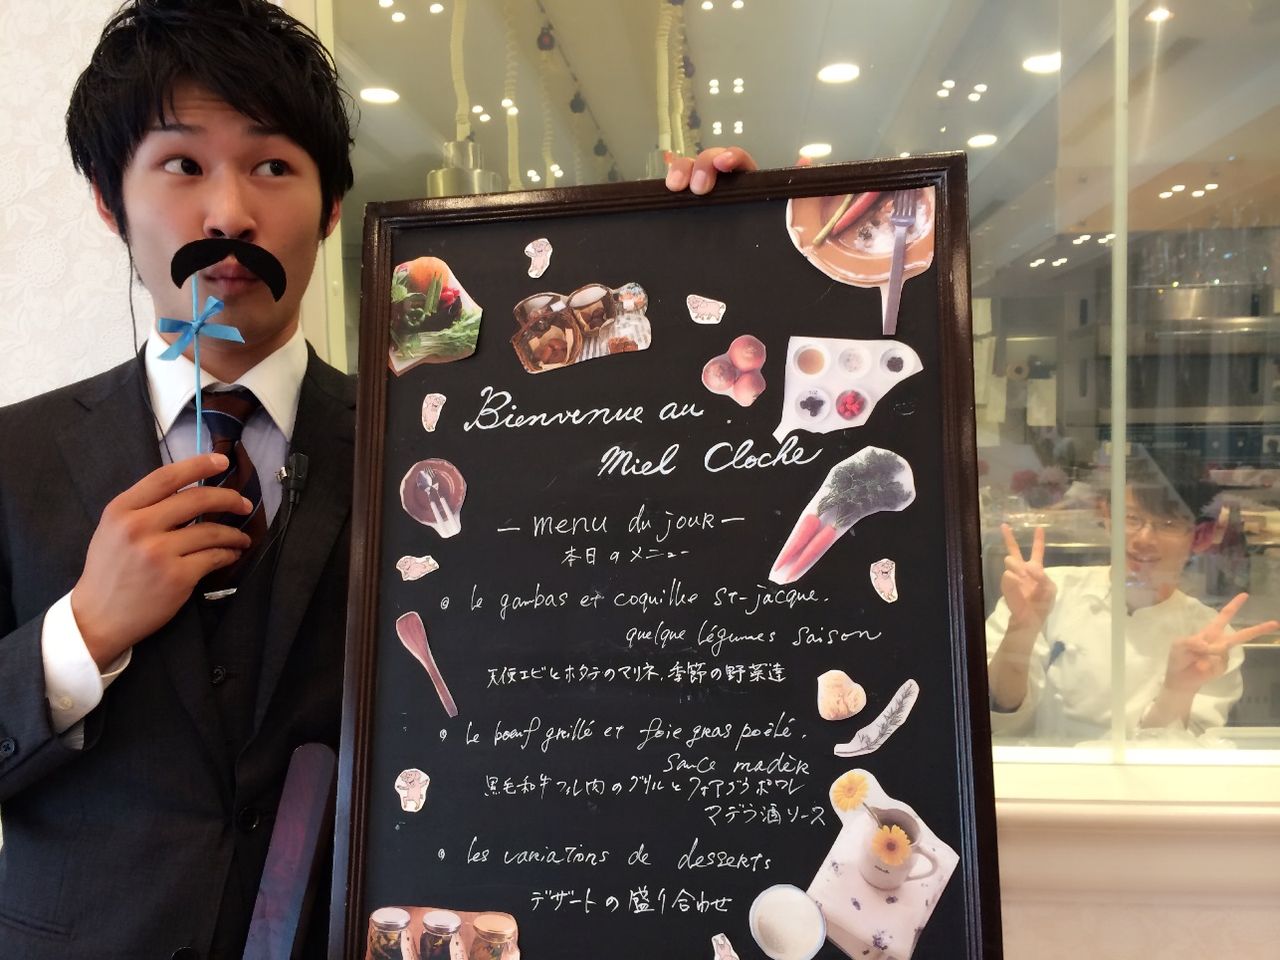 Bienvenue au
Miel Cloche
— menu du jour —
本日のメニュー
le gambas et coquille st-jacque.
quelque légumes saison
天使エビとホタテのマリネ、季節の野菜達
le bœuf grillé et foie gras poêlé.
sauce madèr
黒毛和牛フィレ肉のグリルとフォアグラポワレ
マデラ酒ソース
les variations de desserts
デザートの盛り合わせ